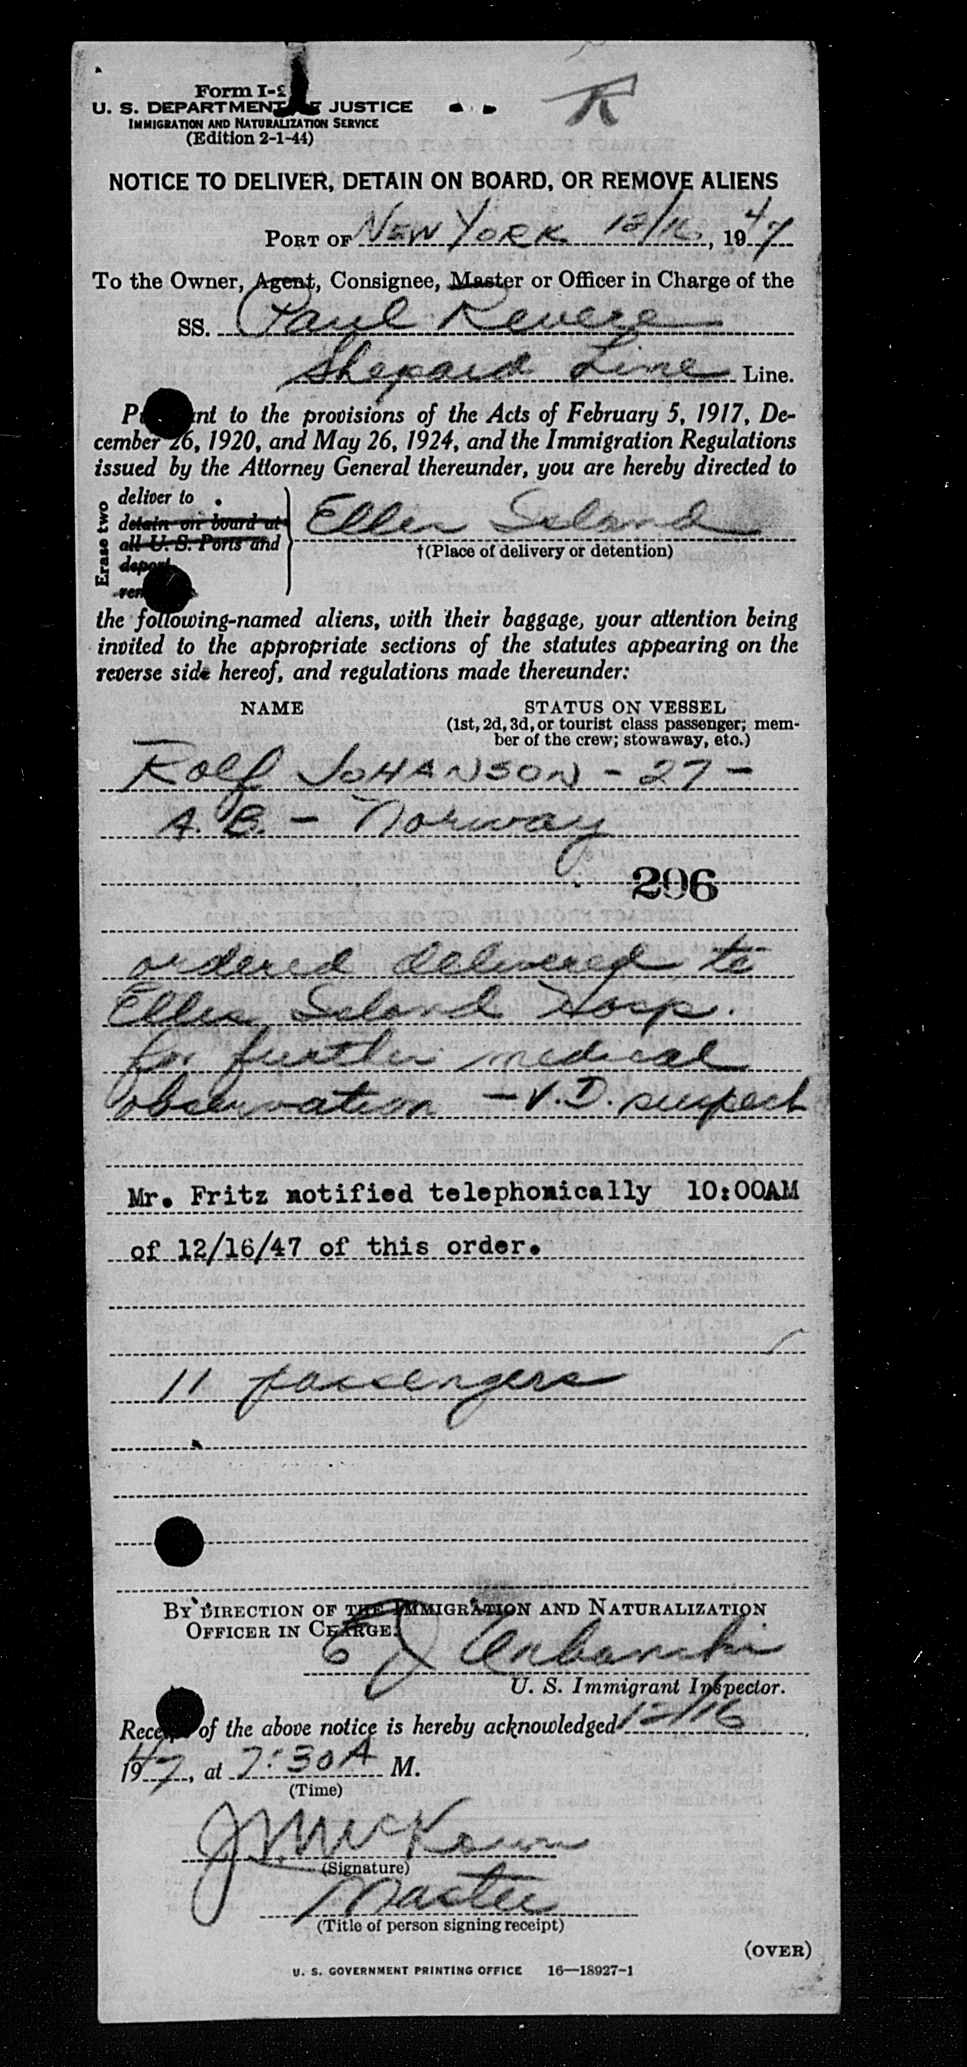 R
Form I-2
U. S. DEPARTMENT OF JUSTICE
IMMIGRATION AND NATURALIZATION SERVICE
(Edition 2-1-44)
NOTICE TO DELIVER, DETAIN ON BOARD, OR REMOVE ALIENS
PORT OF NEW YORK 12/16, 1947
To the Owner, Agent, Consignee, Master or Officer in Charge of the
SS. Paul Revere
Shepard Line Line.
Pursuant to the provisions of the Acts of February 5, 1917, De-
cember 26, 1920, and May 26, 1924, and the Immigration Regulations
issued by the Attorney General thereunder, you are hereby directed to
Erase two
deliver to
detain on board at
all U. S. Ports and
deport
Ellis Island
†(Place of delivery or detention)
the following-named aliens, with their baggage, your attention being
invited to the appropriate sections of the statutes appearing on the
reverse side hereof, and regulations made thereunder:
NAME STATUS ON VESSEL
(1st, 2d, 3d, or tourist class passenger; mem-
ber of the crew; stowaway, etc.)
Rolf JOHANSON - 27 -
A. B. - Norway
206
ordered delivered to
Ellis Island Hosp.
for further medical
observation - V.D. suspect
Mr. Fritz notified telephonically 10:00AM
of 12/16/47 of this order.
11 passengers
BY DIRECTION OF THE IMMIGRATION AND NATURALIZATION
OFFICER IN CHARGE.
E J Urbanski
U. S. Immigrant Inspector.
Receipt of the above notice is hereby acknowledged 12/16
1947, at 7:30 A M.
(Time)
J McKown
(Signature)
Master
(Title of person signing receipt)
(OVER)
U. S. GOVERNMENT PRINTING OFFICE 16—18927-1